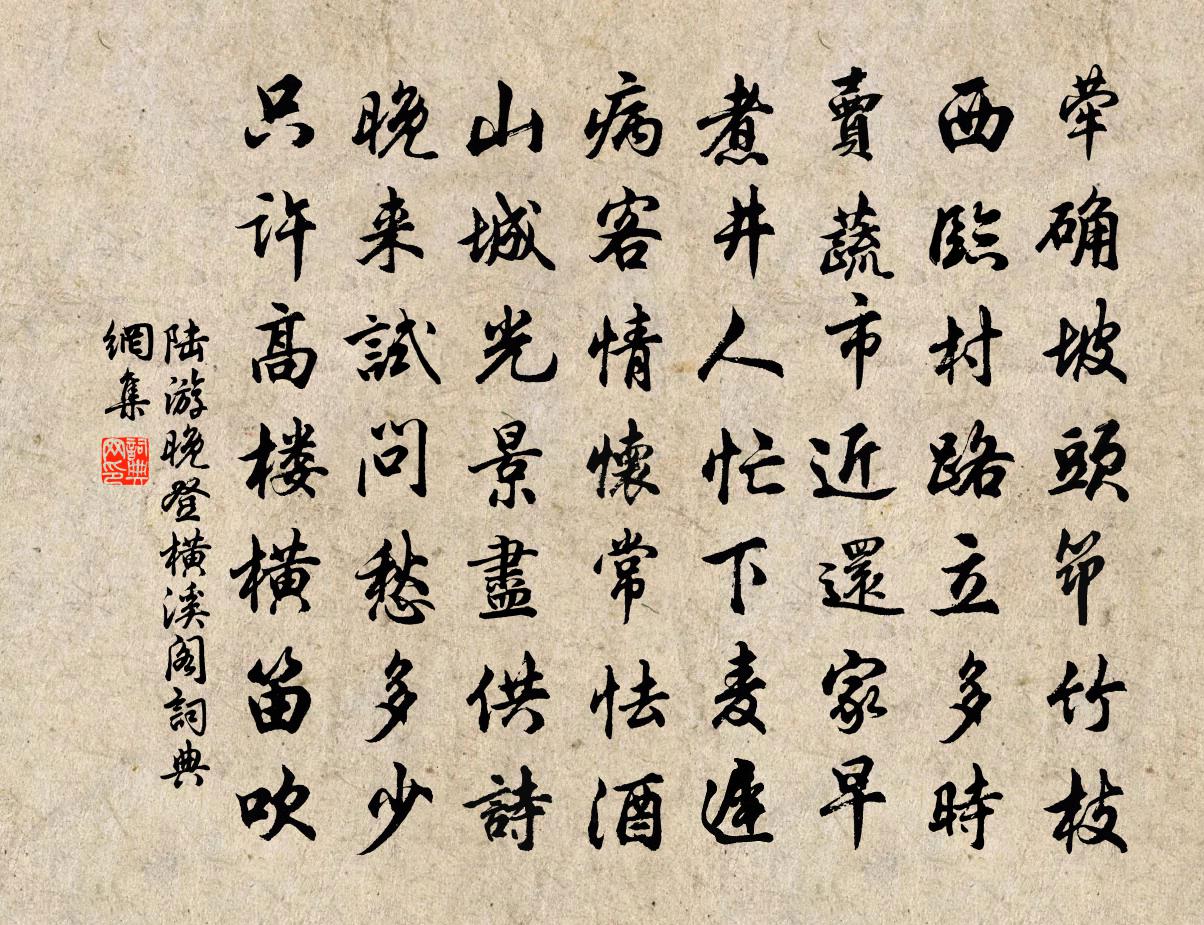 荦确坡頭筇竹枝
西臨村路立多時
賣蔬市近還家早
煮井人忙下麦遲
病客情懷常怯酒
山城光景盡供詩
晚来試問愁多少
只許高楼橫笛吹
陸游晚登橫溪阁詞典
網集
詞典网印